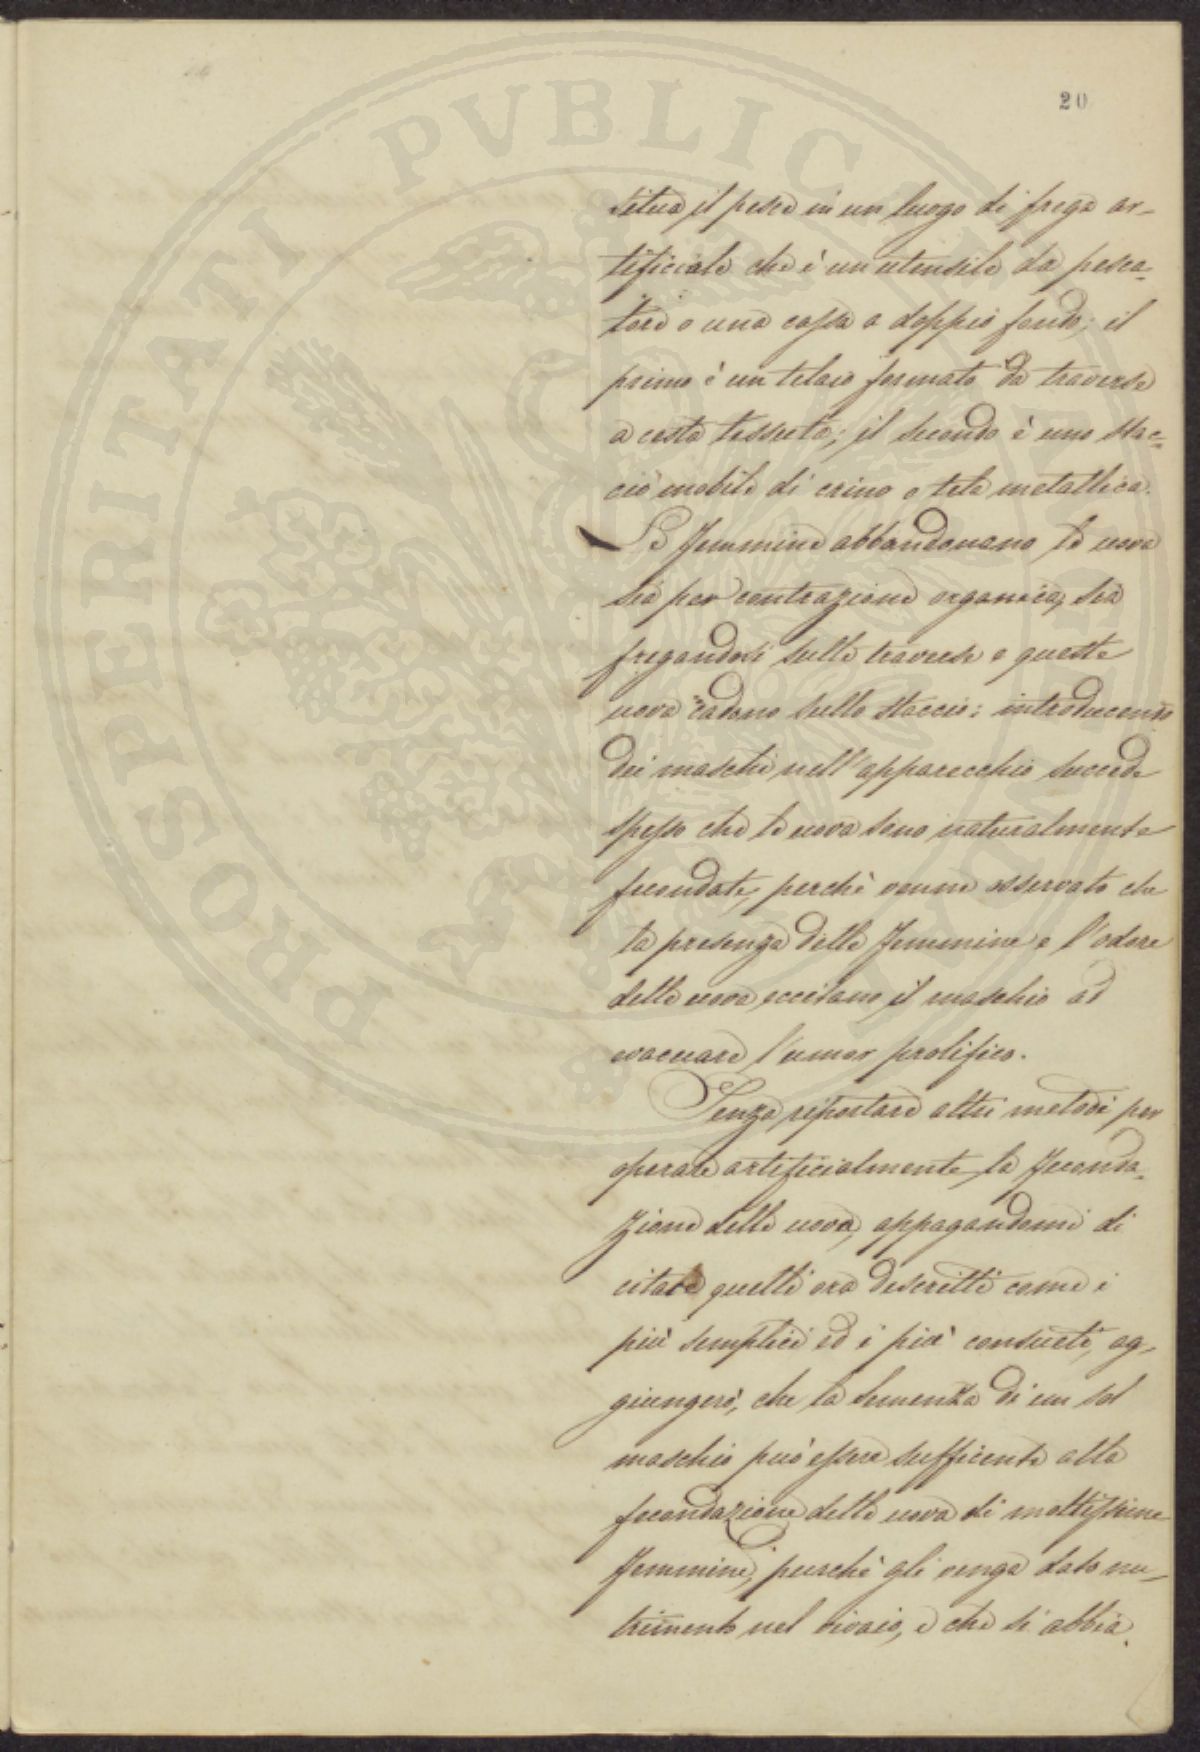 20
situa il pesce in un luogo di frega ar-
tificiale che è un utensile da pesca-
tore o una cassa a doppio fondo; il
primo è un telaio formato da traverse
a cesta tessuta; il secondo è uno stac-
cio mobile di crino o tela metallica.
Le femmine abbandonano le uova
sia per contrazione organica, sia
fregandosi sulle traverse e queste
uova cadono sullo staccio: introducendo
dei maschi nell'apparecchio succede
spesso che le uova sono naturalmente
fecondate, perchè venne osservato che
la presenza delle femmine e l'odore
delle uova eccitano il maschio ad
evacuare l'umor prolifico.
Senza riportare altri metodi per
operare artificialmente la feconda-
zione delle uova, appagandomi di
citare quelli ora descritti come i
più semplici ed i più consueti, ag-
giungerò, che la semenza di un sol
maschio può essere sufficente alla
fecondazione delle uova di moltissime
femmine, purchè gli venga dato nu-
trimento nel vivaio, e che si abbia
PROSPERITATI PVBLICAE